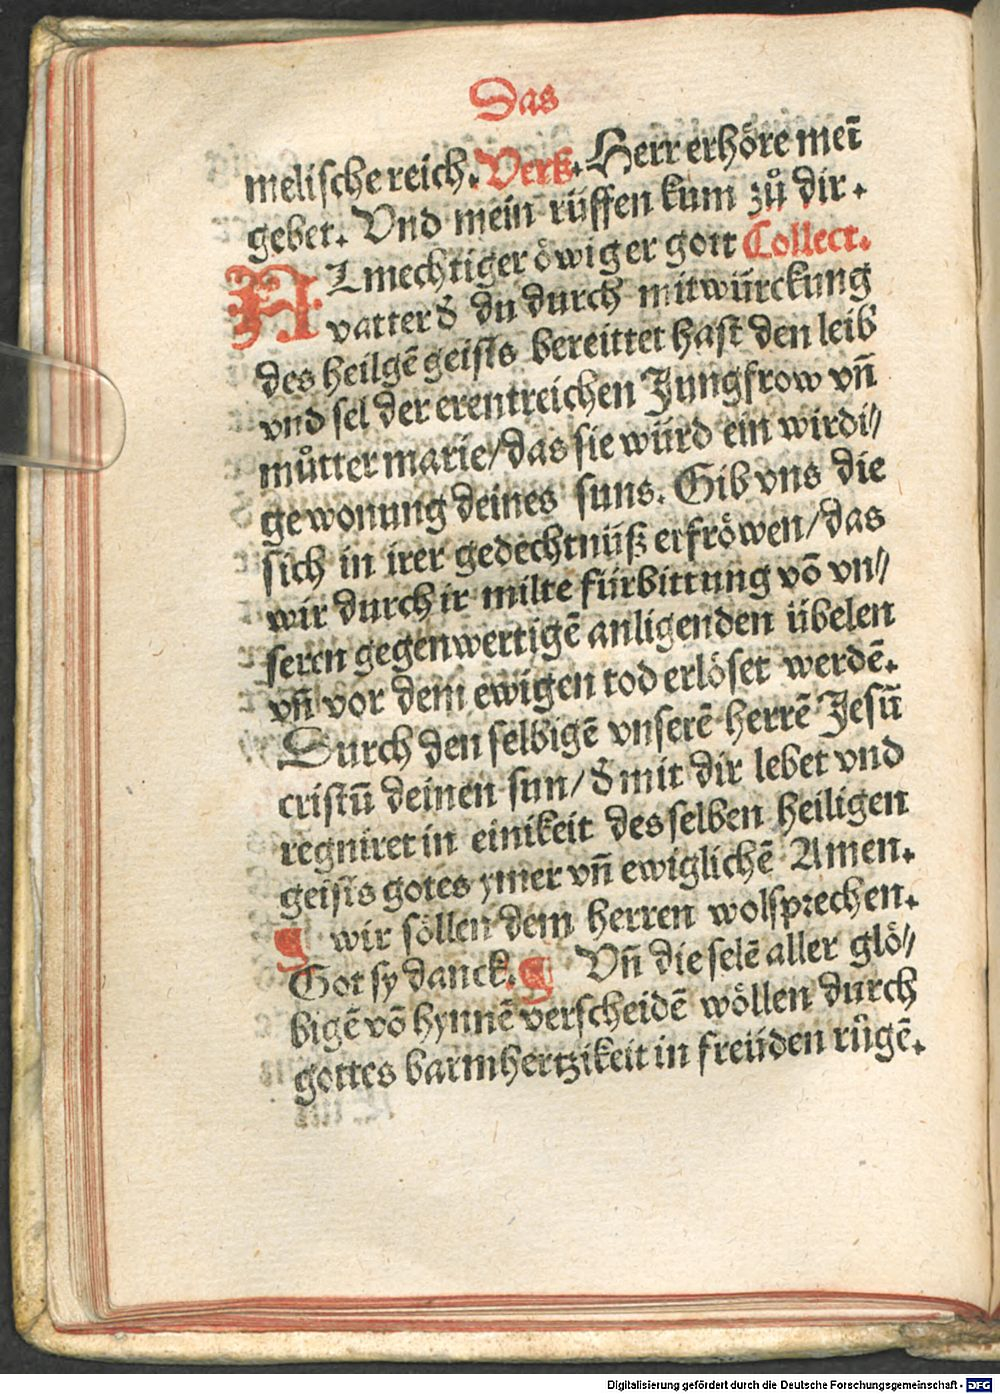 Das
melische reich. Vers. Herr erhöre meī
gebet. Vnd mein rüffen kum zů dir.
ALmechtiger öwiger gott Collect.
vatter d̕ du durch mitwürckung
des heilgē geists bereittet hast den leib
vnd sel der erentreichen Jungfrow vn̄
můtter marie/das sie würd ein wirdi//
ge wonung deines suns. Gib vns die
sich in irer gedechtnüß erfröwen/das
wir durch ir milte fürbittung vō vn//
seren gegenwertigē anligenden übelen
vn̄ vor dem ewigen tod erlöset werdē.
Durch den selbigē vnserē herrē Jesū
cristū deinen sun/d̕ mit dir lebet vnd
regniret in einikeit des selben heiligen
geists gotes ymer vn̄ ewiglichē Amen.
¶ wir söllen dem herren wolsprechen.
Got sy danck. ¶ Vn̄ die selē aller glö//
bigē vō hynnē verscheidē wöllen durch
gottes barmhertzikeit in freüden růgē.
Digitalisierung gefördert durch die Deutsche Forschungsgemeinschaft - DFG